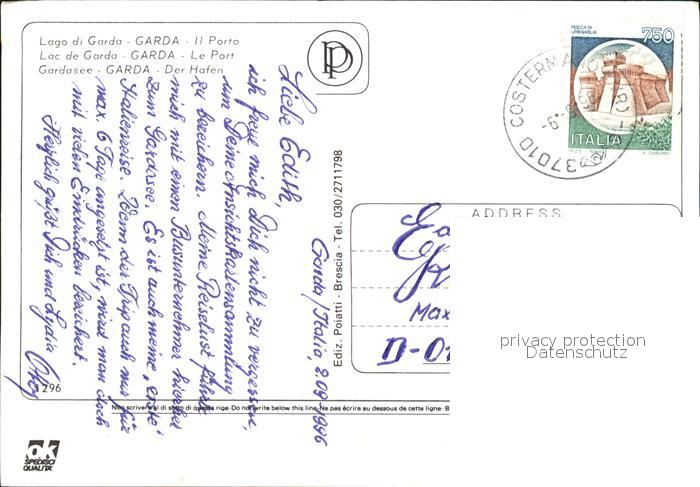 Lago di Garda - GARDA - Il Porto
Lac de Garda - GARDA - Le Port
Gardasee - GARDA - Der Hafen
P
ROCCA DI
URBISAGLIA
750
ITALIA
37010 COSTERMA
Garda/Italia, 2.09.1996
Liebe Edith,
ich freue mich Dich nicht zu vergessen,
um Deine Ansichtskartensammlung
zu bereichern. Meine Reiselust führte
mich mit einem Busunternehmer hierher
zum Gardasee. Es ist auch meine "erste"
Italienreise. Wenn der Trip auch nur für
max. 6 Tage angesetzt ist, wird man doch
mit vielen Eindrücken bereichert.
Herzlich grüßt Dich und Lydia
1296
Ediz. Poiatti - Brescia - Tel. 030/2711798
ADDRESS
Max
D-0
privacy protection
Datenschutz
Non scrivere al di sotto di questa riga-Do not write below this line-Ne pas écrire au dessous de cette ligne-B
ok
SPEDISCI
QUALITÀ